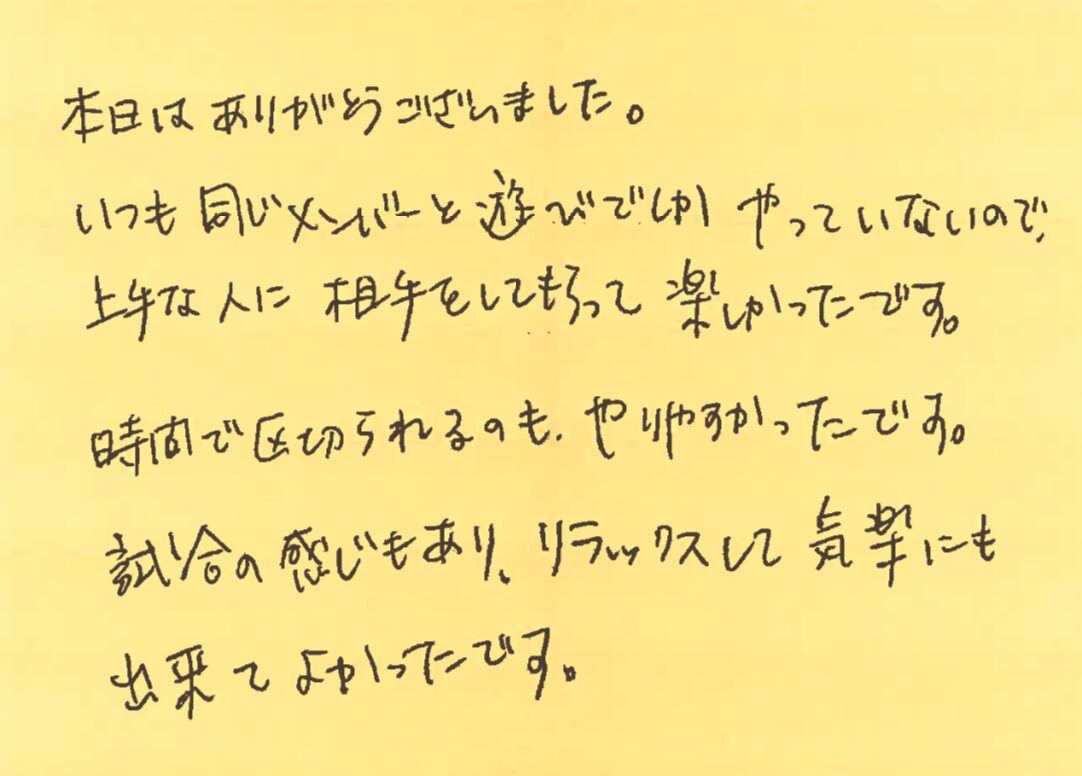 本日はありがとうございました。
いつも同じメンバーと遊びでしか やっていないので、
上手な人に 相手をしてもらって 楽しかったです。
時間で区切られるのも、やりやすかったです。
試合の感じもあり、リラックスして 気楽にも
出来て よかったです。